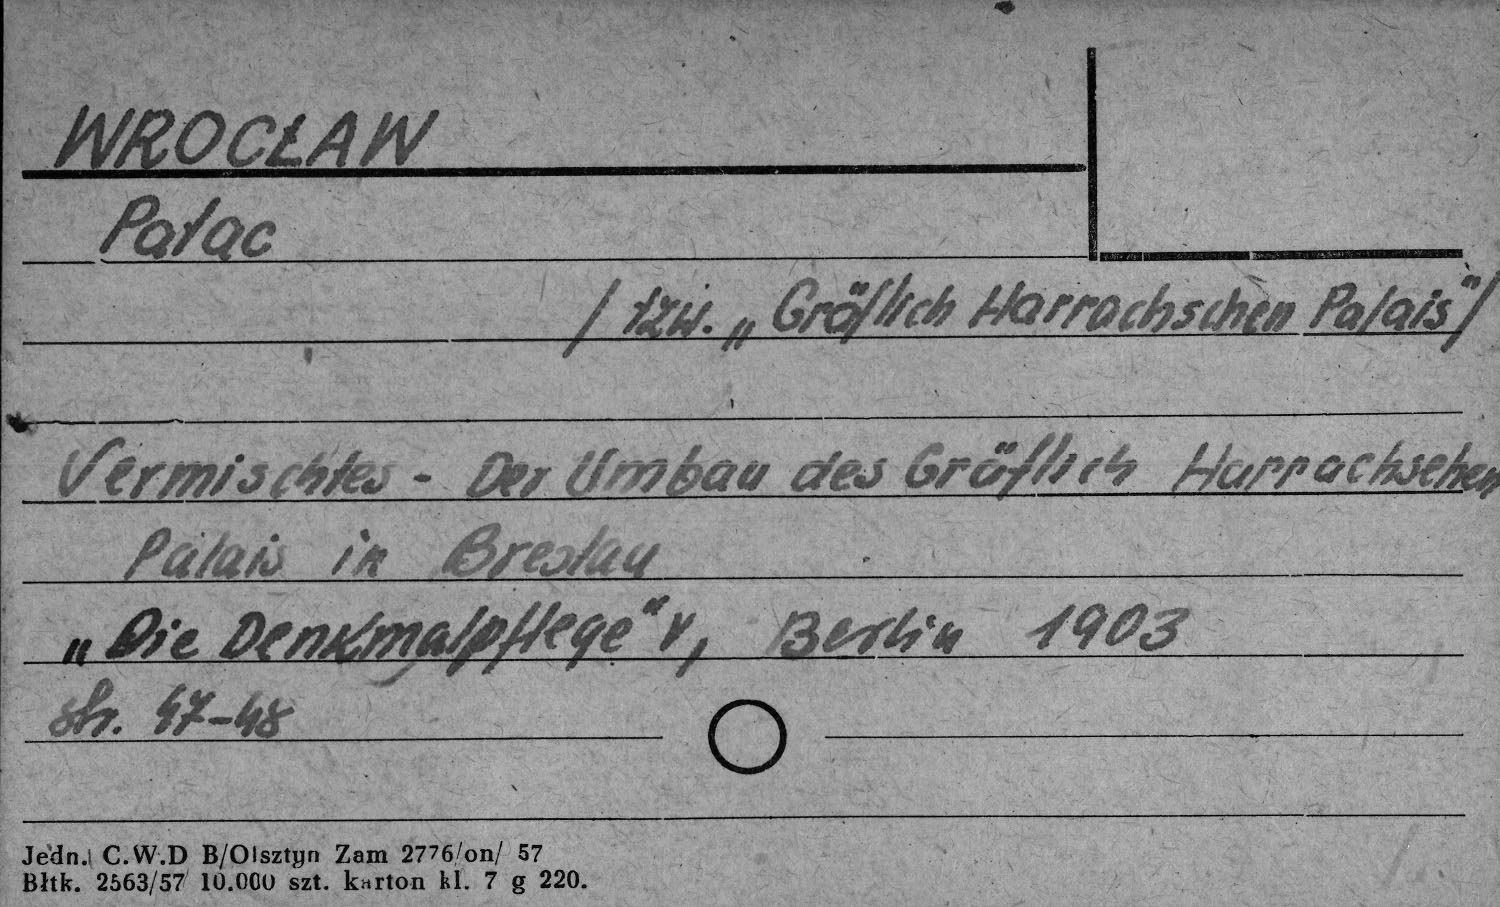 WROCŁAW
Pałac
/ tzw. „Gräflich Harrachschen Palais"/
Vermischtes - Der Umbau des Gräflich Harrachschen
Palais in Breslau
„Die Denkmalpflege" V, Berlin 1903
str. 47-48
Jedn. C.W.D B/Olsztyn Zam 2776/on/ 57
Błtk. 2563/57 10.000 szt. karton kl. 7 g 220.